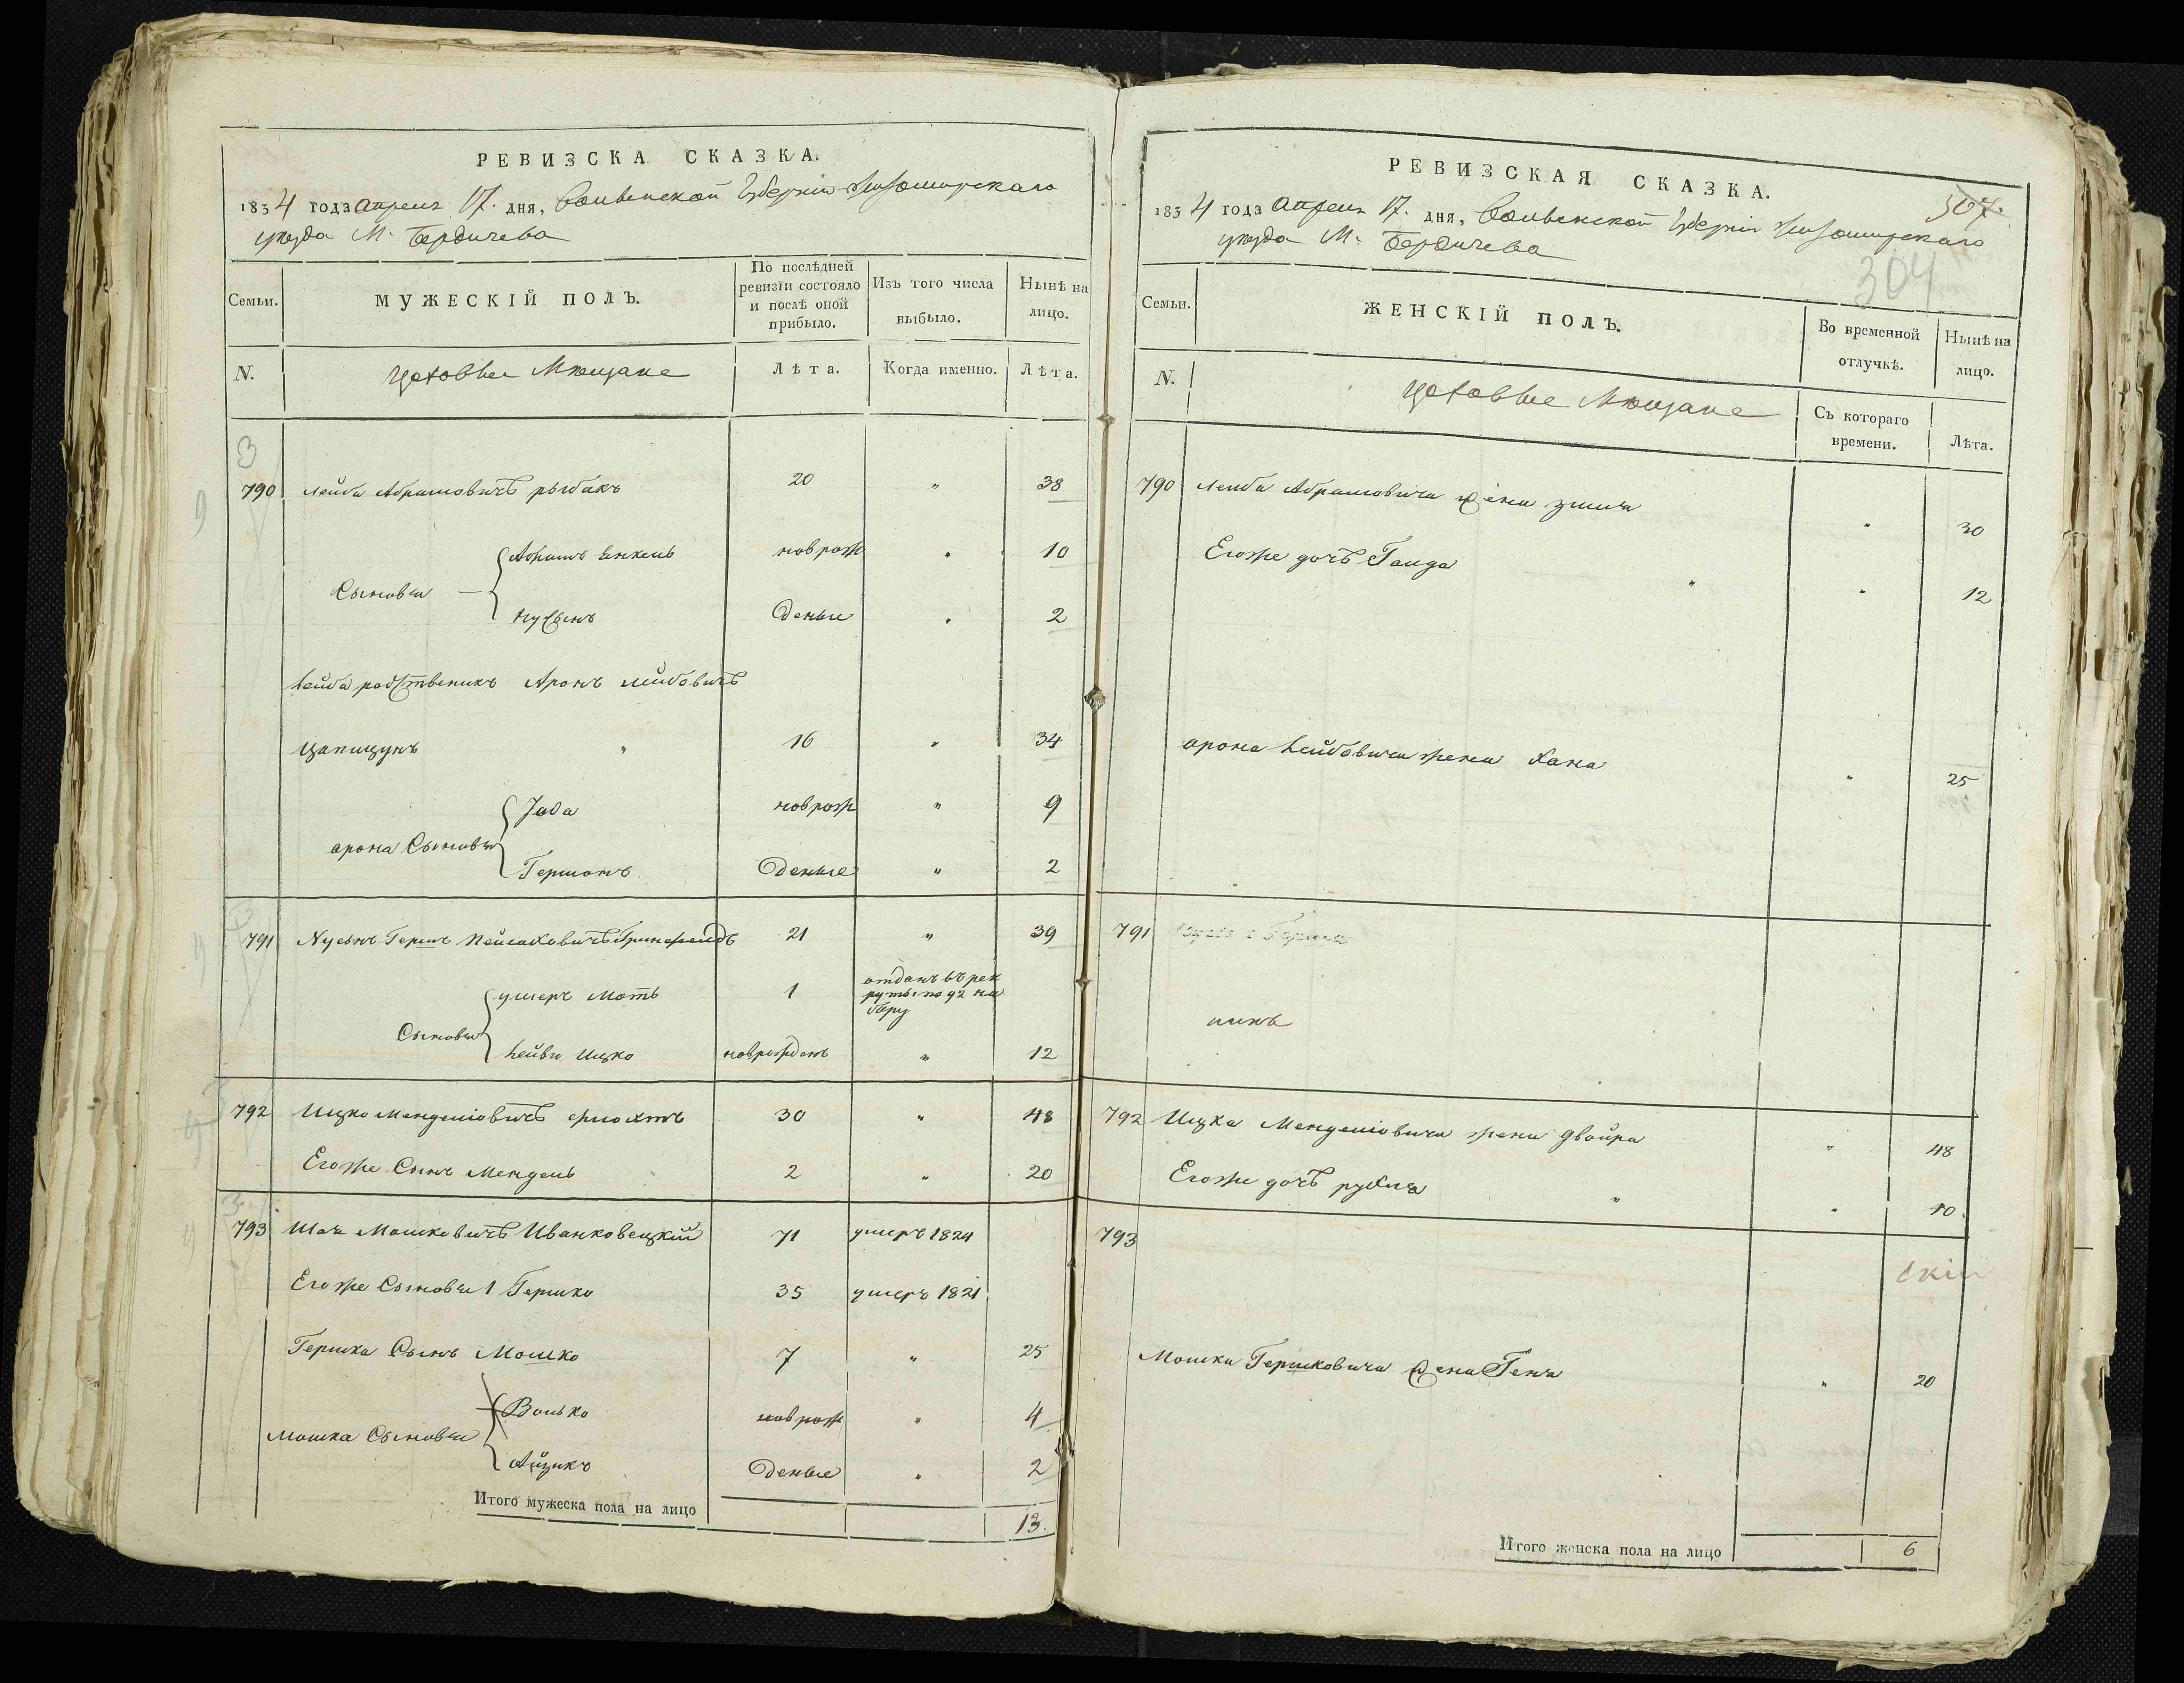 РЕВИЗСКА СКАЗКА.
1834 года Апреля 17. дня, Волынской Губернии Житомирского
уезда М. Бердичева
Семьи.
МУЖЕСКІЙ ПОЛЪ.
По послѣдней ревизіи состояло и послѣ оной прибыло.
Изъ того числа выбыло.
Нынѣ на лицо.
N.
Цеховые Мещане
Лѣта.
Когда именно.
Лѣта.
790 Лейба Абрамовичъ рыбакъ 20 " 38
Абрамъ Янкель новрож " 10
Сыновья
Нусынъ Деные " 2
Лейба родственикъ Аронъ Лейбовичъ
" 16 " 34
новрож " 9
арона Сыновья
Гершонъ Деные " 2
791 Нусынъ Гершъ Пейсаховичъ 21 " 39
Мотъ 1 отданъ въ рек
руты по
Сыновья
Лейба Ицко новрожденъ " 12
792 Ицко Менделіовичъ 30 " 48
Егоже Сынъ Мендель 2 " 20
793 Мошковичъ Иванковецкій 71 умеръ 1824
Егоже Сыновья 1 Гершко 35 умеръ 1821
Гершка Сынъ Мошко 7 " 25
Волько новрож " 4
Мошка Сыновья
Айзикъ Деные " 2
Итого мужеска пола на лицо 13.
РЕВИЗСКАЯ СКАЗКА.
307.
1834 года Апреля 17. дня, Волынской Губерніи Житомирского
уезда М. Бердичева
304
Семьи.
ЖЕНСКІЙ ПОЛЪ.
Во временной отлучкѣ.
Нынѣ на лицо.
N.
Цеховые Мещане
Съ котораго времени.
Лѣта.
790 Лейба Абрамовича жена " 30
Егоже дочъ " " 12
арона Лейбовича жена Хана " 25
791
792 Ицка Менделіовича жена Двойра " 48
Егоже дочъ рухля " " 10.
793
Мошка Гершковича жена Геня " 20
Итого женска пола на лицо 6